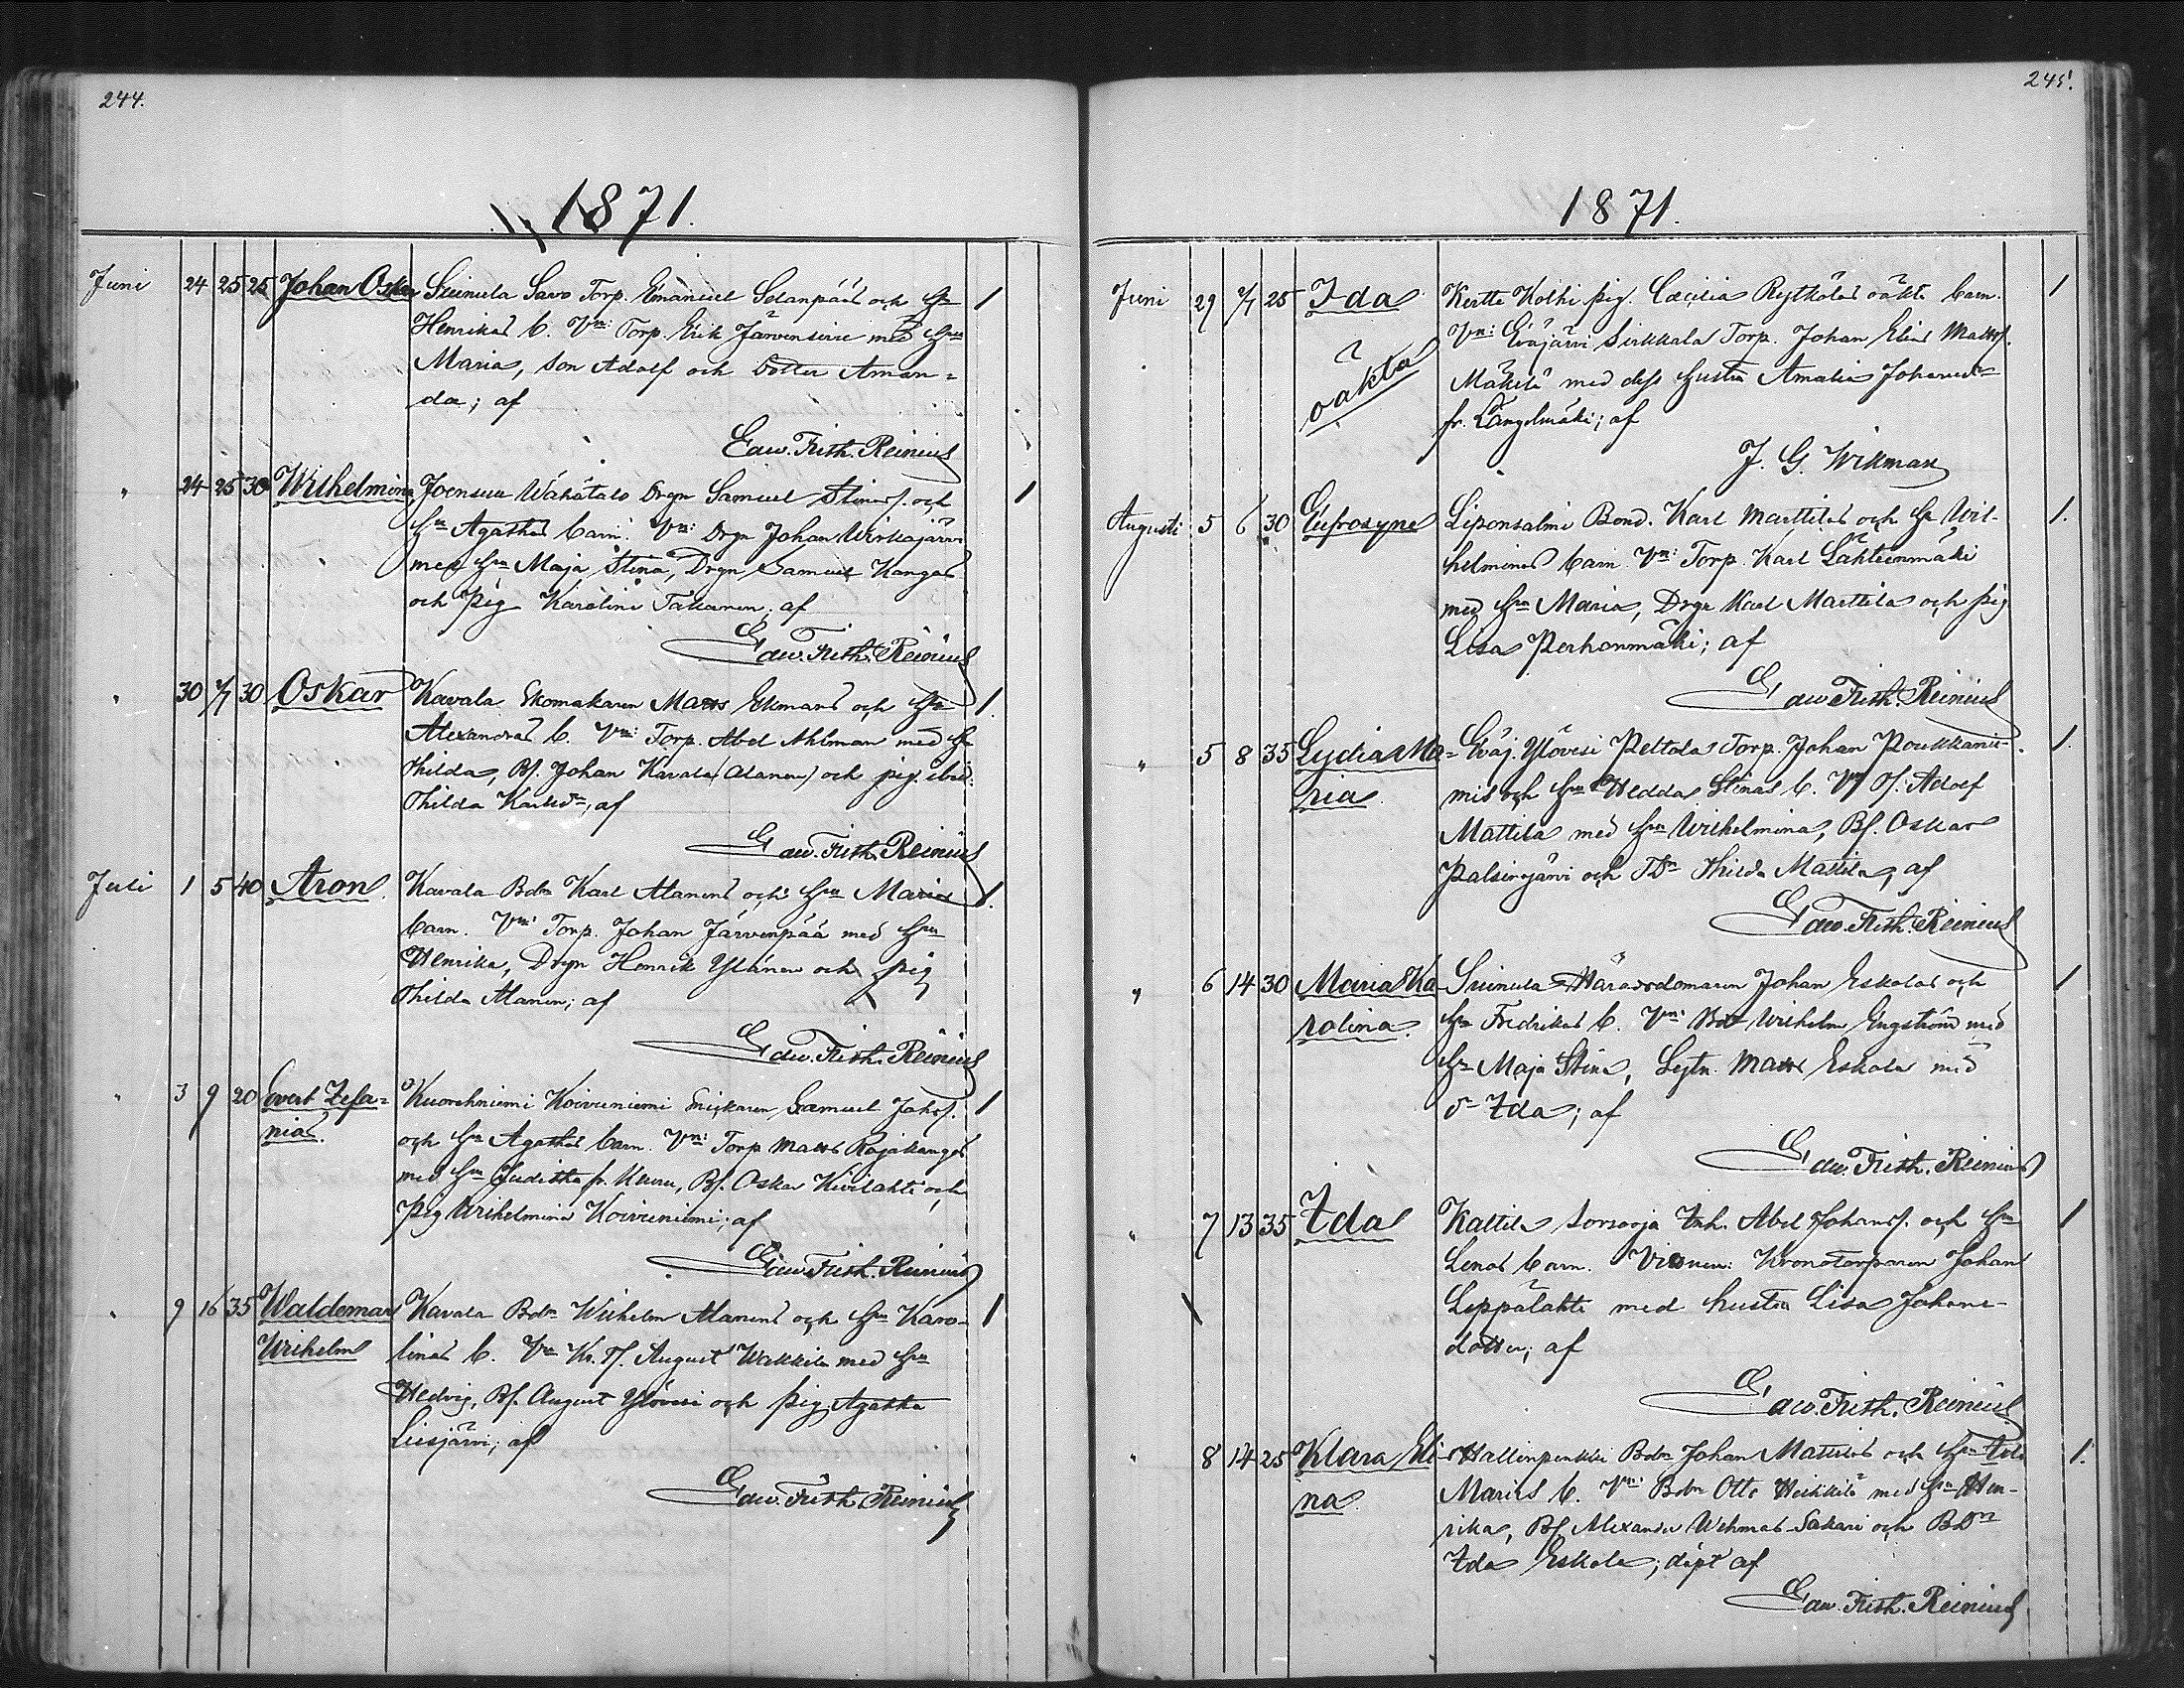 244.
1871.
Juni 24 25 25 Johan Oskar Suinula Savo Torp. Emanuel Selanpääs och Hu
Henrikas b. Vn: Torp. Erik Järvensivu med Hu
Maria, son Adolf och dotter Aman-
da; af
Edw. Frith. Reinius
" 24 25 30 Wilhelmina Joensuu Wähätalo Drgn Samuel Stinas f. och
Hu Agathas barn. Vn: Drgn Johan Wirkajärvi
med Hu Maja Stina, Drgn Samuel Kangas
och pig Karolina Takanen; af
Edw. Frith. Reinius
" 30 2/7 30 Oskar Kavala Skomakaren Matts Ekmans och Hu
Alexandras b. Vn: Torp. Abel Ahlman med Hu
Thilda, Bs. Johan Kavala (Alanen) och pig. ibid.
Thilda Karlsdr, af
Edw. Frith. Reinius
Juli 1 5 40 Aron. Kavala Bdn Karl Alanens och Hu Marias
barn. Vn: Torp. Johan Järvenpää med Hu
Henrika, Drgn Henrik Ylänen och pig
Thilda Alanen; af
Edw. Frith. Reinius
" 3 9 20 Evert Zefa-
nias. Kuorehniemi Koivuniemi Snickaren Samuel Johs f.
och Hu Agathas barn. Vn: Torp Matts Rajakangas
med Hu Juditha fr. Keuru, Bs. Oskar Kivilahti och
pig Wilhelmina Koivuniemi; af
Edw. Frith. Reinius
" 9 16 35 Waldemar
Wilhelm Kavala Bdn Wilhelm Alanens och Hu Karo-
linas b. Vn Kr. Tf. August Wakkila med Hu
Hedvig, Bs. August Ylövesi och pig Agatha
Liesjärvi; af
Edw. Frith. Reinius
245.
1871.
Juni 29 2/7 25 Ida Kertte Kolhi pig. Cæcilia Rytkölas oäkta barn.
oäkta
Vn: Eväjärvi Sirkkala Torp. Johan Elias Matts f.
Mäkelä med dess hustru Amalia Johansdr
fr. Längelmäki; af
J. G. Wikman
Augusti 5 6 30 Eufrosyne Liponsalmi Bond. Karl Marttilas och Hu Wil-
helminas barn. Vn: Torp. Karl Lähteenmäki
med Hu Maria, Drgn Karl Marttila och pig
Lisa Perhonmäki; af
Edw. Frith. Reinius
" 5 8 35 Lydia Ma-
ria. Eväj. Ylövesi Peltola Torp. Johan Poukkanie-
mis och Hu Hedda Stinas b. Vn Tf. Adolf
Mattila med Hu Wilhelmina, Bs. Oskar
Palsinajärvi och TDn Thilda Mattila, af
Edw. Frith. Reinius
" 6 14 30 Maria Ka-
rolina. Suinula Häradsdomaren Johan Eskolas och
Hu Fredrikas b. Vn: Bdn Wilhelm Engström med
Hu Maja Stina, Lejtn. Matts Eskola med
dr Ida; af
Edw. Frith. Reinius
" 7 13 35 Ida Kattila Sorsooja Inh. Abel Johans f. och Hu
Lenas barn. Vittnen: Kronotorparen Johan
Leppälahti med hustru Lisa Johans-
dotter; af
Edw. Frith. Reinius
" 8 14 25 Klara Eli-
na. Hallinpenkki Bdn Johan Mattilas och Hu Ida
Marias b. Vn: Bdn Otto Heikkilä med Hu Hen-
rika, Bs. Alexander Wehmas-Sakari och BDn
Ida Eskola; döpt af
Edw. Frith. Reinius